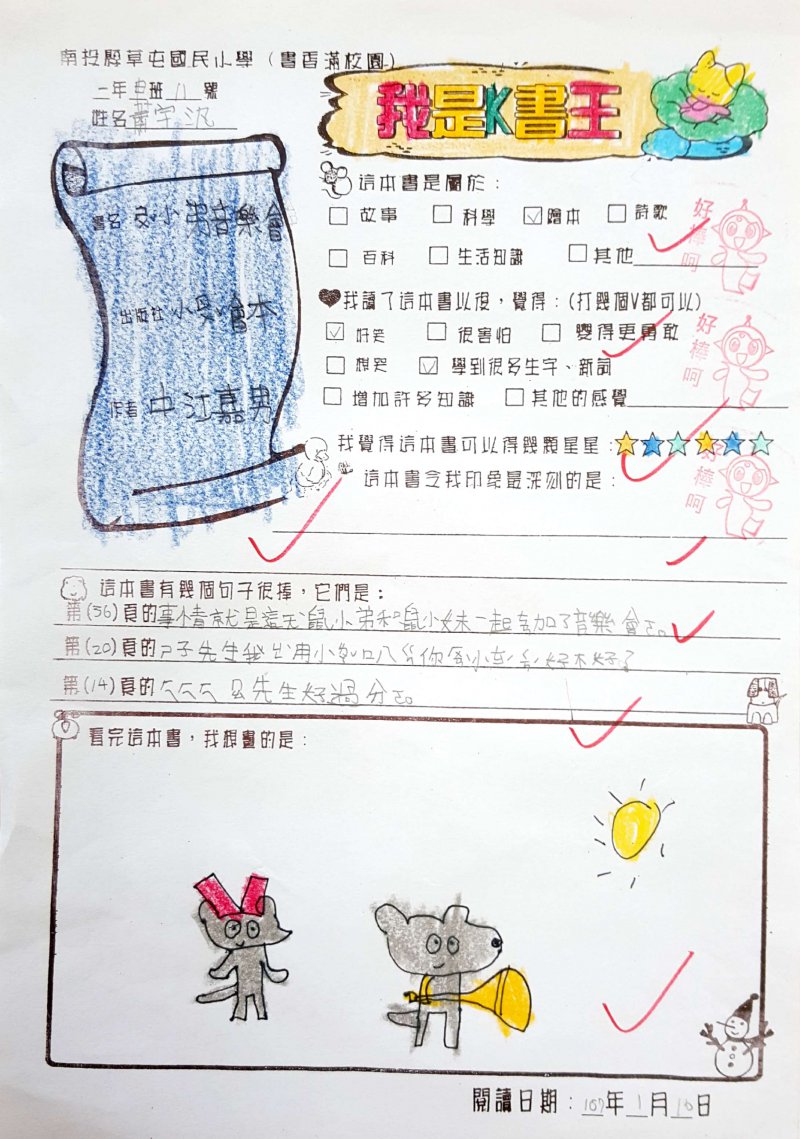 南投縣草屯國民小學（書香滿校園）
二年 班 11 號
姓名 宇汎
我是K書王
書名 小弟音樂會
出版社 小 繪本
作者 中江嘉男
這本書是屬於：
□ 故事 □ 科學 ☑ 繪本 □ 詩歌
□ 百科 □ 生活知識 □ 其他
好棒呵
我讀了這本書以後，覺得：(打幾個V都可以)
☑ 好笑 □ 很害怕 □ 變得更勇敢
□ 想哭 ☑ 學到很多生字、新詞
□ 增加許多知識 □ 其他的感覺
好棒呵
我覺得這本書可以得幾顆星星：
這本書令我印象最深刻的是：
好棒呵
這本書有幾個句子很棒，它們是：
第(36)頁的事情就是這 鼠小弟和鼠小妹一起 加了音樂會
第(20)頁的 先生我 用小 你 小 好不好
第(14)頁的 先生好過分
看完這本書，我想畫的是：
閱讀日期：107年1月10日